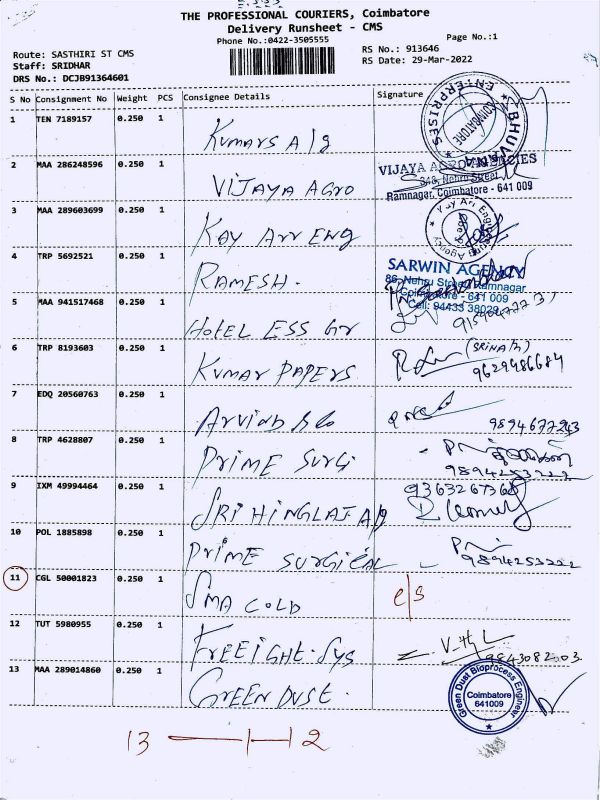 THE PROFESSIONAL COURIERS, Coimbatore
Delivery Runsheet - CMS
Phone No.:0422-3505555
Page No.:1
Route: SASTHIRI ST CMS
Staff: SRIDHAR
DRS No.: DCJB91364601
RS No.: 913646
RS Date: 29-Mar-2022
S No Consignment No Weight PCS Consignee Details Signature
1 TEN 7189157 0.250 1 Kumars A/g
BHUVANA ENTERPRISES COIMBATORE
2 MAA 286248596 0.250 1 VIJAYA AGRO
VIJAYA AGRO AGENCIES
Nehru Street,
Ramnagar, Coimbatore - 641 009
3 MAA 289603699 0.250 1 KAY Arr ENg
4 TRP 5692521 0.250 1 RAMESH.
SARWIN AGENCY
86, Nehru Street, Ramnagar,
Coimbatore - 641 009
Cell: 94433 38029
5 MAA 941517468 0.250 1 HOTEL ESS
6 TRP 8193603 0.250 1 KUMAR PAPERS (SRINATH)
9629486684
7 EDQ 20560763 0.250 1 Arvind
9894677243
8 TRP 4628807 0.250 1 PRIME SURGI
9894253222
9 IXM 49994464 0.250 1 SRI HINGLAJ A/g
9363267368
10 POL 1885898 0.250 1 PRIME SURGICAL
9894253222
11 CGL 50001823 0.250 1 SMA COLD e/s
12 TUT 5980955 0.250 1 FREEIGHT. Sys
13 MAA 289014860 0.250 1 GREEN DUST.
Green Dust Bioprocess Engineer
Coimbatore
641009
13 12